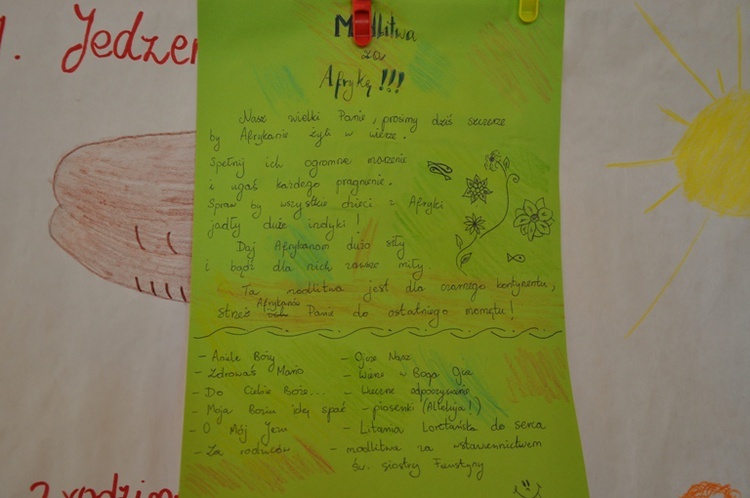 1. Jedzen
Modlitwa
za
Afrykę!!!
Nasz wielki Panie, prosimy dziś szczerze
by Afrykanie żyli w wierze.
Spełnij ich ogromne marzenie
i ugaś każdego pragnienie.
Spraw by wszystkie dzieci z Afryki
jadły duże indyki!
Daj Afrykanom dużo siły
i bądź dla nich zawsze miły
Ta modlitwa jest dla czarnego kontynentu,
strzeż Afrykanów Panie do ostatniego momętu!
- Aniele Boży
- Zdrowaś Mario
- Do Ciebie Boże...
- Moja Bozia idę spać
- O Mój Jezu
- Za rodziców
- Ojcze Nasz
- Wierzę w Boga Ojca
- Wieczne odpoczywanie
- piosenki (Alleluja!)
- Litania Loretańska do serca
- modlitwa za wstawiennictwem
św. siostry Faustyny
2. rodzin